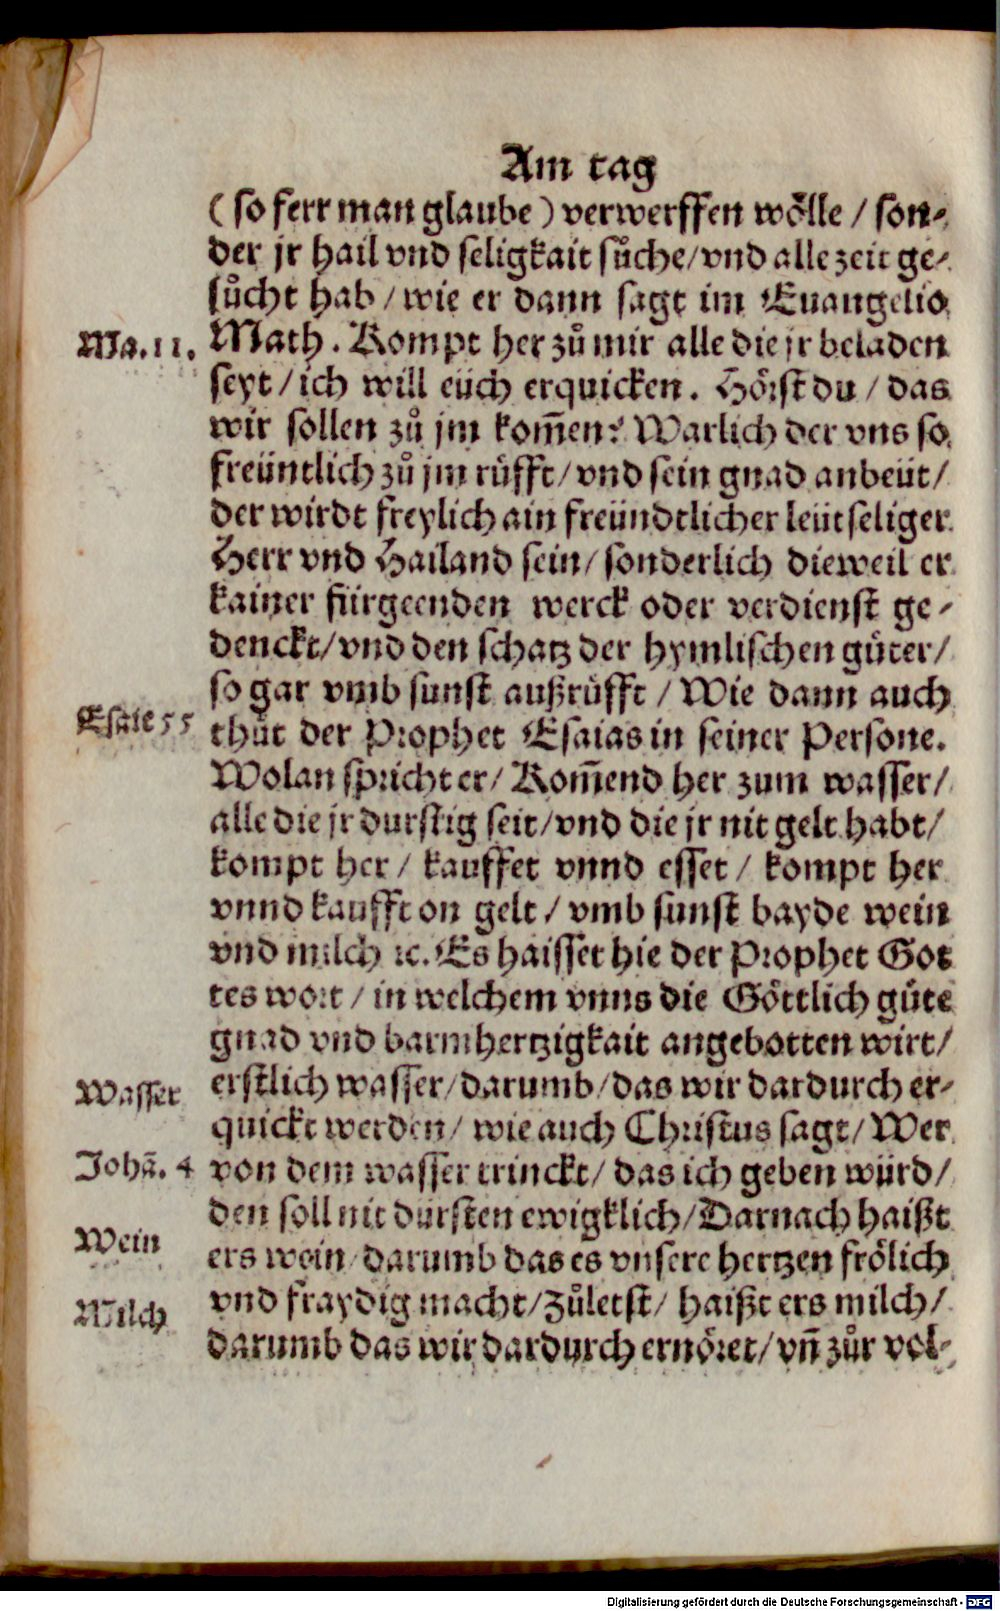 Am tag
(so ferr man glaube) verwerffen wölle / son⸗
der jr hail vnd seligkait sůche/vnd alle zeit ge⸗
sůcht hab / wie er dann sagt im Euangelio
Ma.11. Math. Kompt her zů mir alle die jr beladen
seyt / ich will eüch erquicken. Hörst du / das
wir sollen zů jm kom̄en? Warlich der vns so
freüntlich zů jm růfft/ vnd sein gnad anbeüt/
der wirdt freylich ain freündtlicher leütseliger
Herr vnd Hailand sein/ sonderlich dieweil er
kainer fürgeenden werck oder verdienst ge⸗
denckt/vnd den schatz der hymlischen gůter/
so gar vmb sunst außrůfft / Wie dann auch
Esaie 55 thůt der Prophet Esaias in seiner Persone.
Wolan spricht er/ Kom̄end her zum wasser/
alle die jr durstig seit/vnd die jr nit gelt habt/
kompt her / kauffet vnnd esset / kompt her
vnnd kaufft on gelt / vmb sunst bayde wein
vnd milch ꝛc. Es haisset hie der Prophet Got
tes wort / in welchem vnns die Göttlich gůte
gnad vnd barmhertzigkait angebotten wirt/
Wasser erstlich wasser/darumb/das wir dardurch er⸗
quickt werden/ wie auch Christus sagt/ Wer
Johā. 4 von dem wasser trinckt/ das ich geben würd/
den soll nit dürsten ewigklich/Darnach haißt
Wein ers wein/darumb das es vnsere hertzen frölich
Milch vnd fraydig macht/Zůletst/ haißt ers milch/
darumb das wir dardurch ernöret/ vn̄ zůr vol⸗
Digitalisierung gefördert durch die Deutsche Forschungsgemeinschaft - DFG